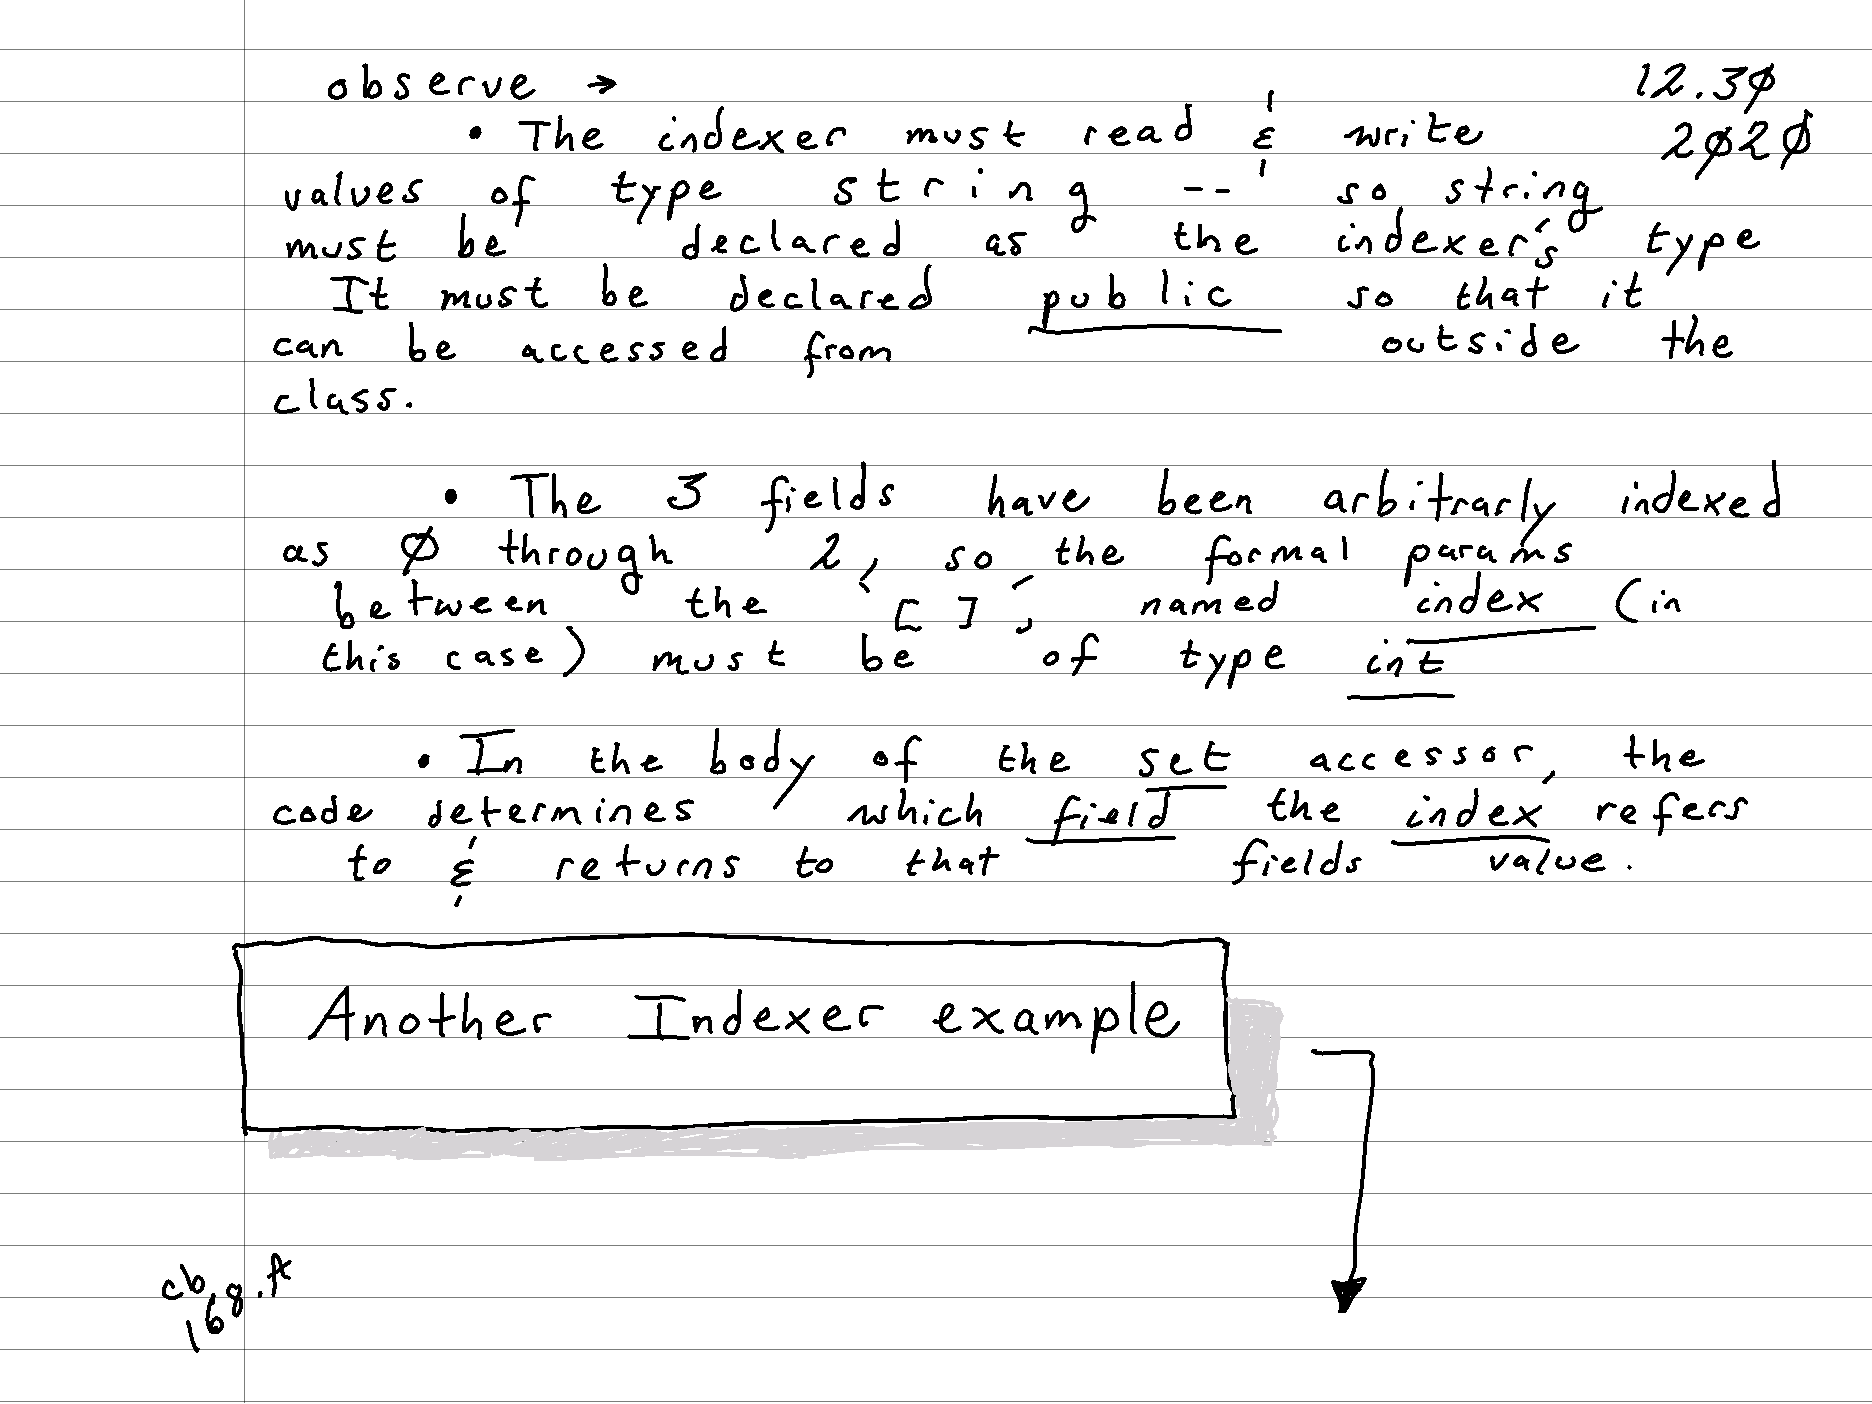 observe →
12.30
• The indexer must read & write
2020
values of type string -- so string
must be declared as the indexer's type
It must be declared public so that it
can be accessed from outside the
class.
• The 3 fields have been arbitrarly indexed
as 0 through 2, so the formal params
between the '[ ]', named index (in
this case) must be of type int
• In the body of the set accessor, the
code determines which field the index refers
to & returns to that fields value.
Another Indexer example
cb
168.A